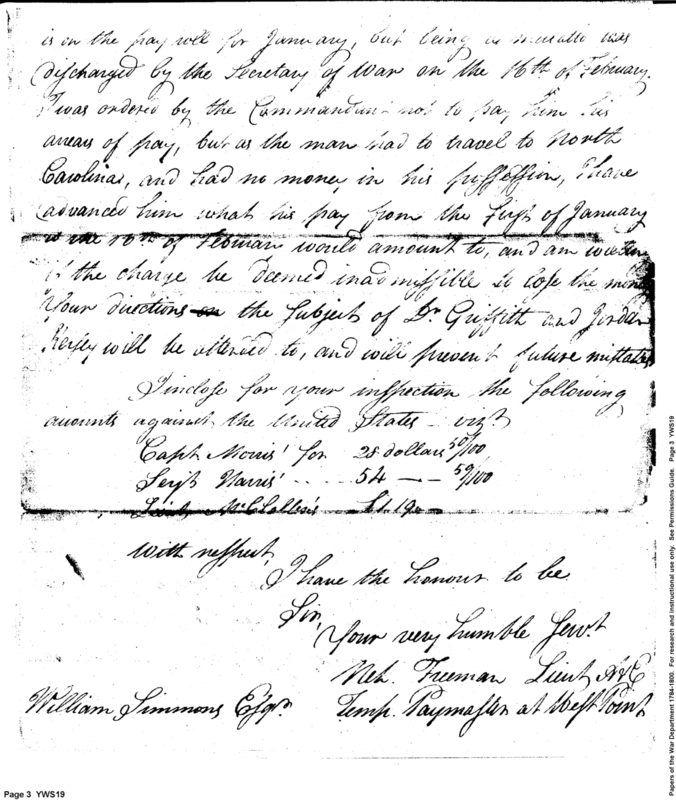 is on the pay roll for January, but being a mulatto was
discharged by the Secretary of War on the 16th of February.
I was ordered by the Commandant not to pay him his
arrears of pay, but as the man had to travel to North
Carolina, and had no money in his possession, I have
advanced him what his pay from the first of January
to the 16th of Februar would amount to, and am willing
if the charge be deemed inadmissible to lose the money
Your directions on the subject of Dr Griffith and Jordan
Kersey will be attended to, and will prevent future mistakes
I inclose for your inspection the following
accounts against the United States - vizt
Capt Morris' for 28 dollars 50/100
Serjt Harris' ..... 54 — — 59/100
Lieut McClallen's
With respect,
I have the honour to be
Sir,
Your very humble Servt
Neh. Freeman Lieut A&E
William Simmons Esqr. Temp. Paymaster at West Point
Page 3 YWS19
Papers of the War Department 1784-1800. For research and instructional use only. See Permissions Guide. Page 3 YWS19